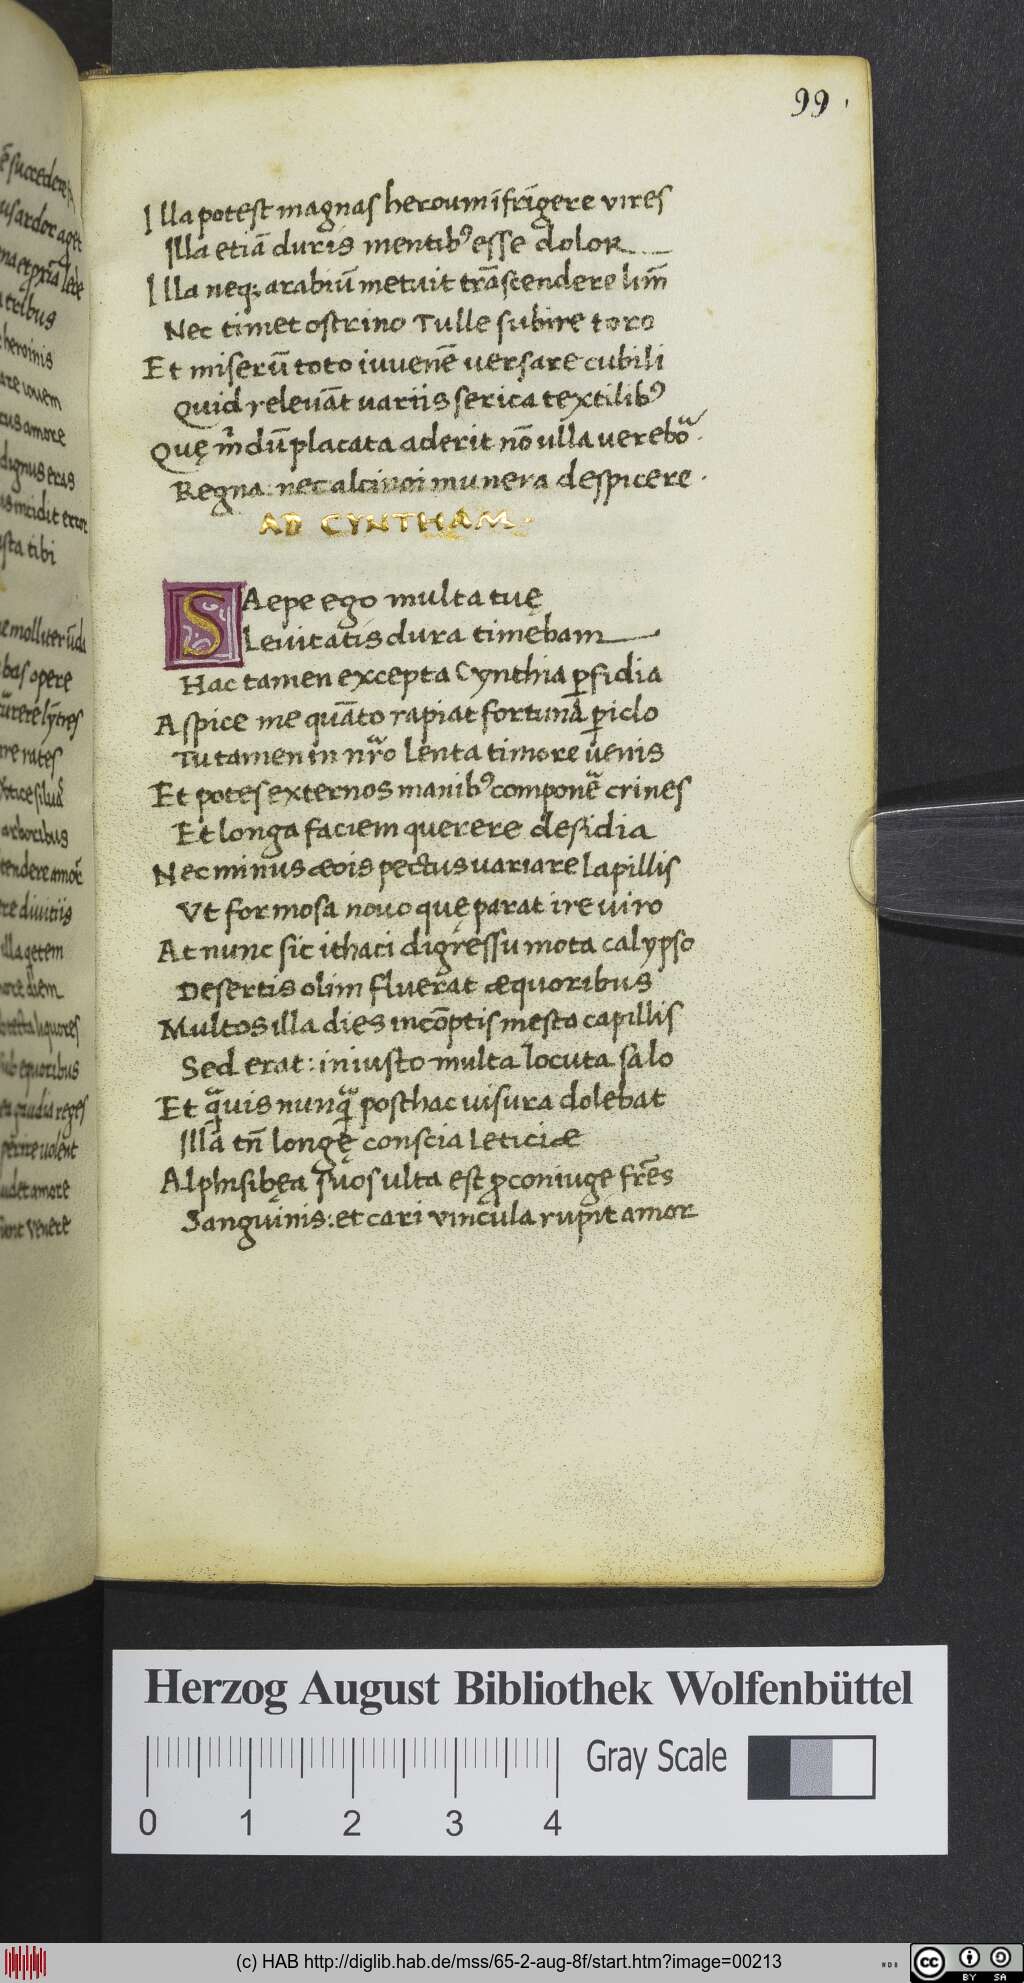 99
Illa potest magnas heroum ĩfrĩgere vires
Illa etiã duris mentibꝰ esse dolor
Illa neqꝫ arabiũ metuit trãscendere lim̃
Nec timet ostrino Tulle subire toro
Et miserũ toto iuvenẽ versare cubili
Quid relevãt variis serica textilibꝰ
Quę m̃ dũ placata aderit nõ ulla verebor
Regna: nec alcinoi munera despicere.
AD CYNTHAM.
SAepe ego multa tuę
Levitatis dura timebam
Hac tamen excepta Cynthia ꝑfidia
Aspice me quãto rapiat fortuna ꝑiclo
Tu tamen in nr̃o lenta timore venis
Et potes externos manibꝰ componẽ crines
Et longa faciem querere desidia
Nec minus æois pectus variare lapillis
Vt formosa novo quę parat ire viro
At nunc sic ithaci digressu mota calypso
Desertis olim fluerat æquoribus
Multos illa dies incõptis mesta capillis
Sed erat: iniusto multa locuta salo
Et q̃vis nunq̃ posthac visura dolebat
Illã tñ longę conscia leticiæ
Alphisibęa suos ulta est ꝓ coniuge frẽs
Sanguinis: et cari vincula rupit amor
Herzog August Bibliothek Wolfenbüttel
0 1 2 3 4
Gray Scale
(c) HAB http://diglib.hab.de/mss/65-2-aug-8f/start.htm?image=00213
cc BY SA